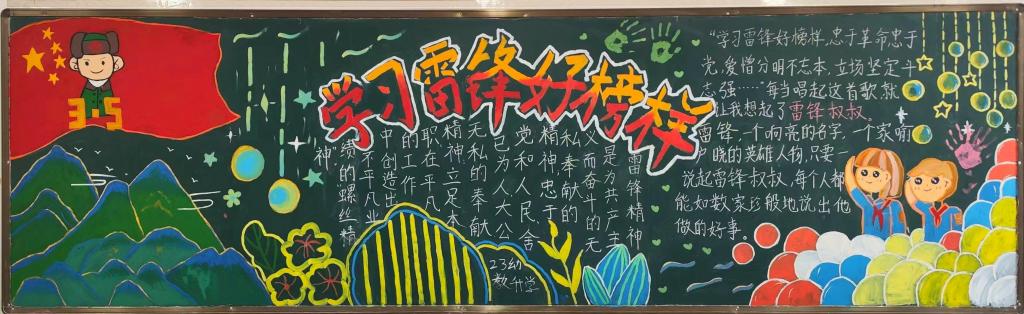 3.5
学习雷锋好榜样
雷锋精神
是为共产主
义而奋斗的无
私奉献的
精神忠于
党和人民舍
己为人大公
无私的奉献
精神立足本
职在平凡
的工作
中创造出
不平凡业
绩的螺丝精
神
23幼
教升学
“学习雷锋好榜样，忠于革命忠于
党，爱憎分明不忘本，立场坚定斗
志强……”每当唱起这首歌，就
让我想起了雷锋叔叔。
雷锋，一个响亮的名字，一个家喻
户晓的英雄人物，只要一
说起雷锋叔叔，每个人都
能如数家珍般地说出他
做的好事。